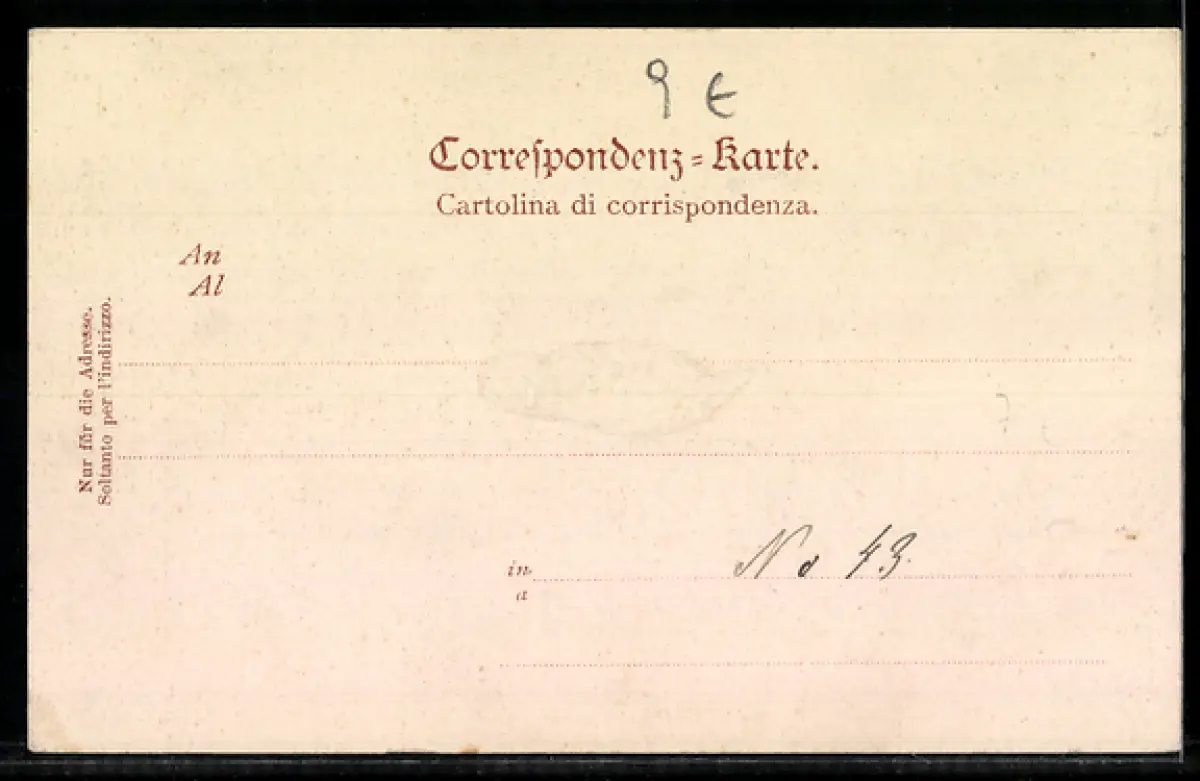 9 €
Correſpondenz=Karte.
Cartolina di corrispondenza.
An
Al
Nur für die Adresse.
Soltanto per l'indirizzo.
in
a
No 43.